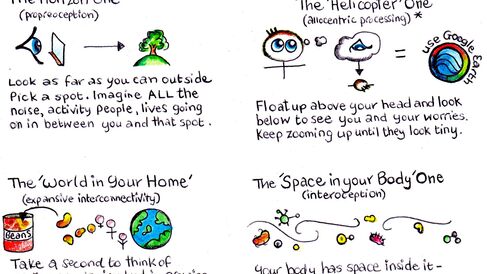 The Horizon One
(propreoception)
Look as far as you can outside
Pick a spot. Imagine ALL the
noise, activity people, lives going
on in between you and that spot.
The 'Helicopter' One
(allocentric processing) *
=
use Google Earth
Float up above your head and look
below to see you and your worries.
Keep zooming up until they look tiny.
The 'World in Your Home'
(expansive interconnectivity)
Beans
Take a second to think of
The 'Space in your Body' One
(interoception)
your body has space inside it -